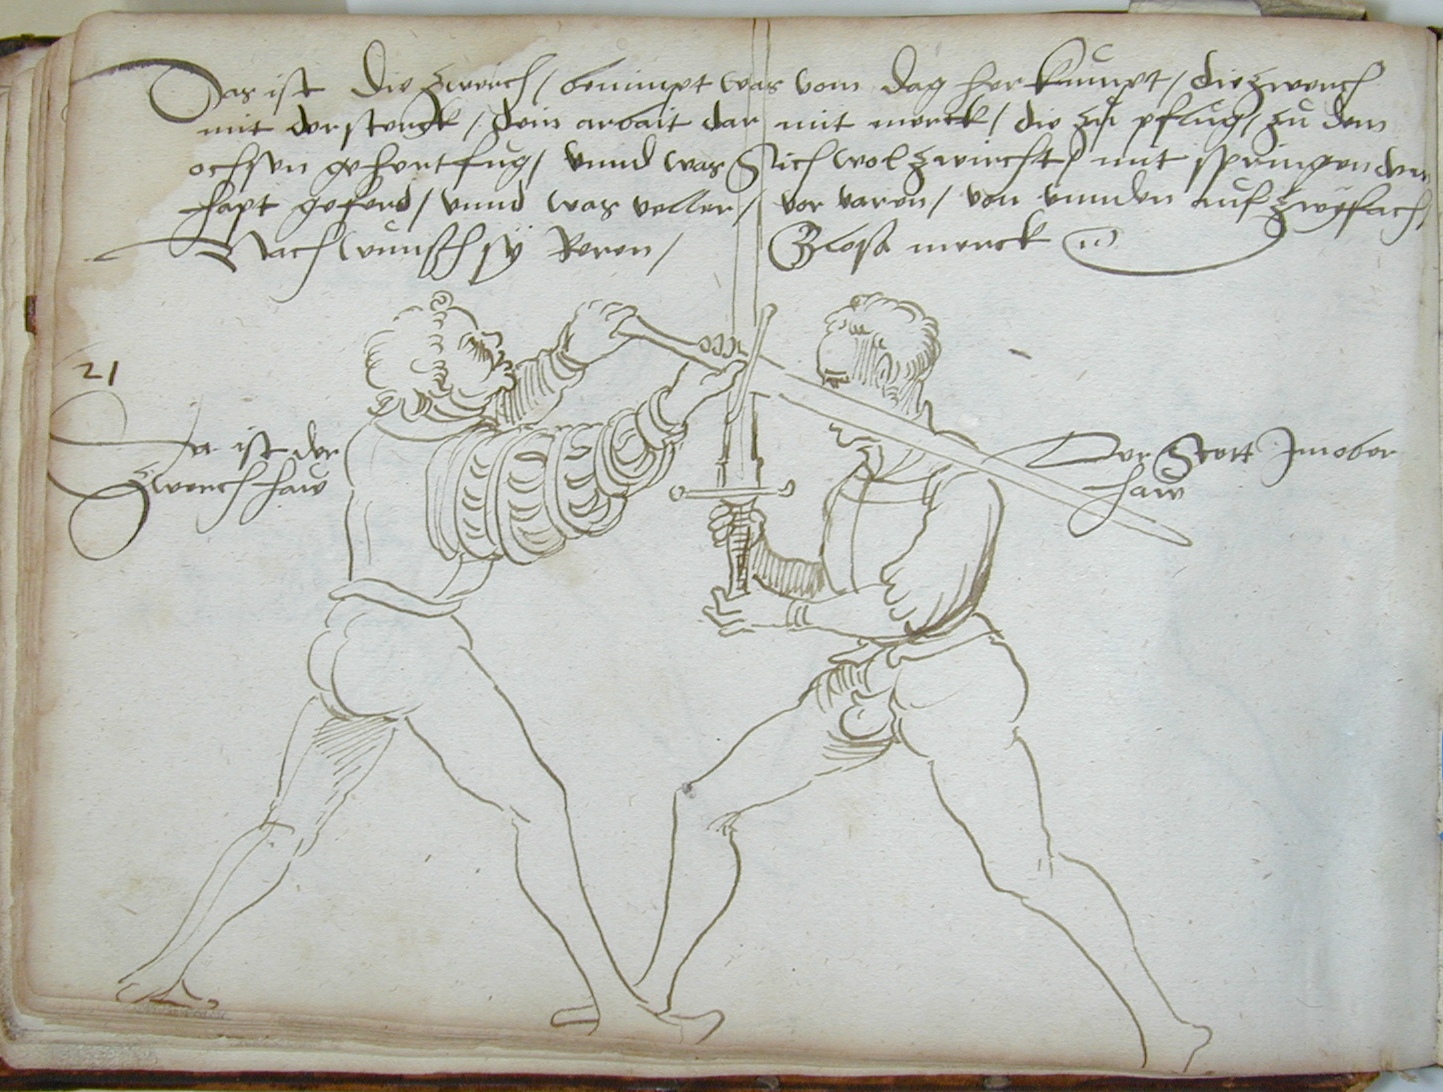 Das ist die zwerch / benimpt was vom dag her kumpt / die zwerch
mit der sterck / dein arbait dar mit merck / die zů pflůg / zů dem
ochsen gehertfug / vnnd was Sich wol zwircht / mit springen dem
hapt geferd / vnnd was veller / vor varen / von vnnden auf zwyfach /
Nach wunsch sy Reren / Glosa merck
21
Der ist der
zwerch haw
Der Stett Jm ober
haw